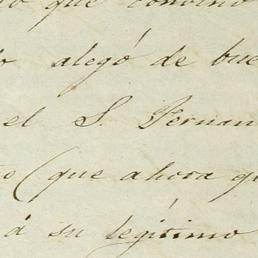 que convino
alegó de bue
el S. Fernan
o (que ahora q
á su legítimo